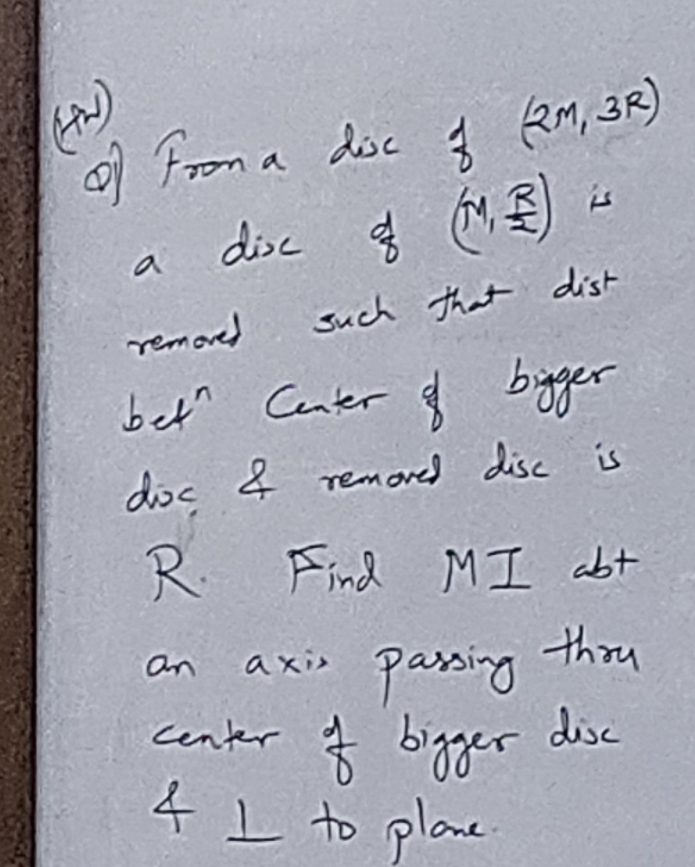 (HW)
Q) From a disc of (2M, 3R)
a disc of (M, R/2) is
removed such that dist
betⁿ Center of bigger
disc & removed disc is
R. Find MI abt
an axis passing thru
center of bigger disc
& ⊥ to plane.